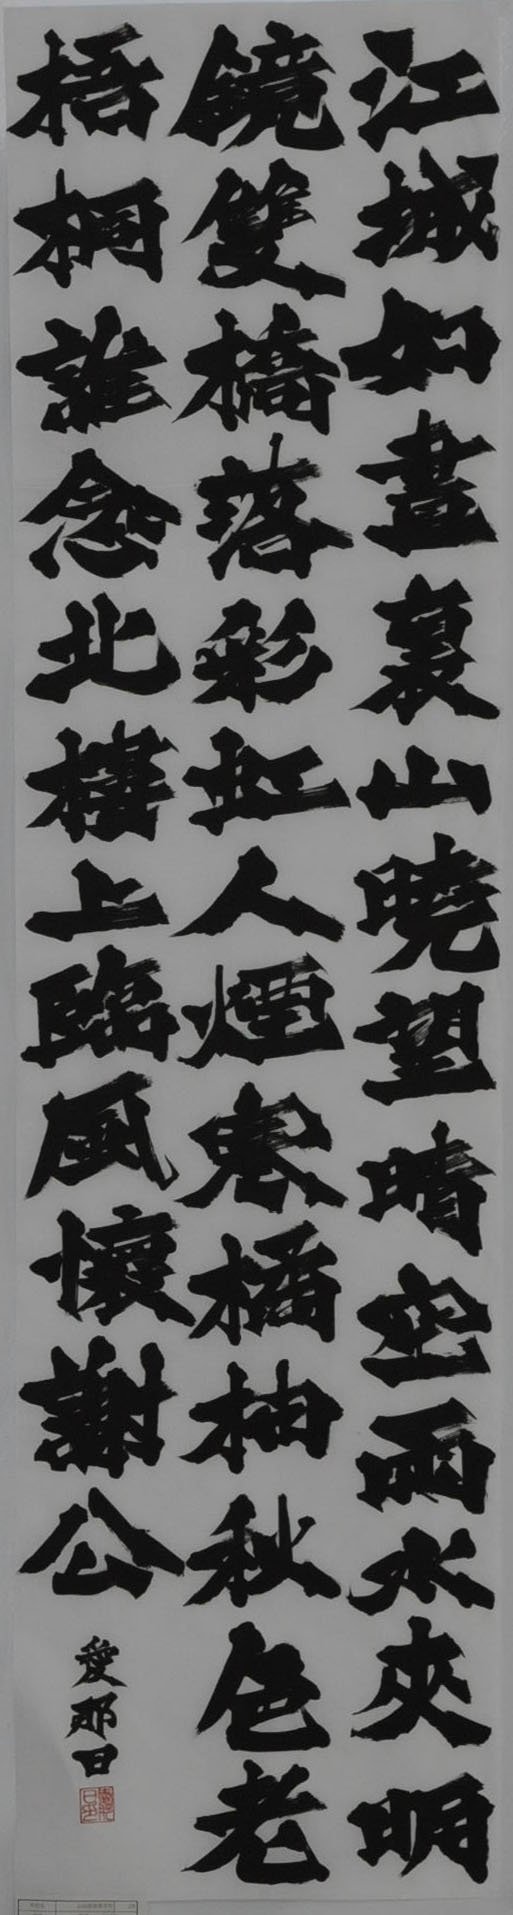 江城如畫裏山曉望晴空雨水夾明
鏡雙橋落彩虹人煙寒橘柚秋色老
梧桐誰念北樓上臨風懷謝公
愛那日